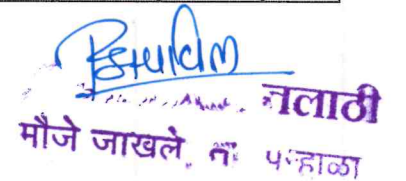 तलाठी
मौजे जाखले, ता पन्हाळा